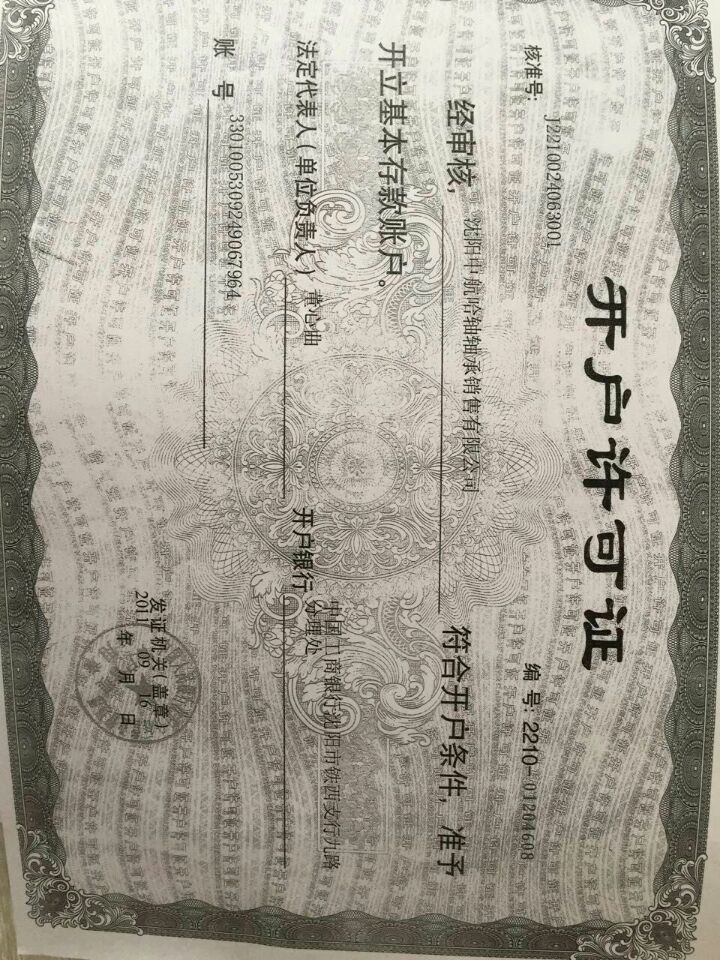 开户许可证
核准号: J2210024063001
编号: 2210-01204608
经审核, 沈阳中航哈轴轴承销售有限公司 符合开户条件, 准予
开立基本存款账户。
法定代表人(单位负责人) 董心曲 开户银行 中国工商银行沈阳市铁西支行九路
分理处
账 号 3301005309249067964
发证机关(盖章)
2011 年 09 月 16 日